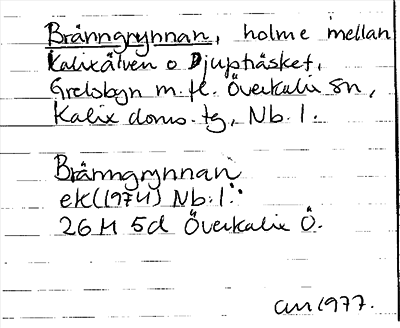 Bränngrynnan, holme mellan
Kalixälven o Djupträsket,
Grelsbyn m.fl. Överkalix sn,
Kalix doms. tg, Nb. l.
Bränngrynnan
ek(1974) Nb. l.:
26M 5d Överkalix Ö.
1977.